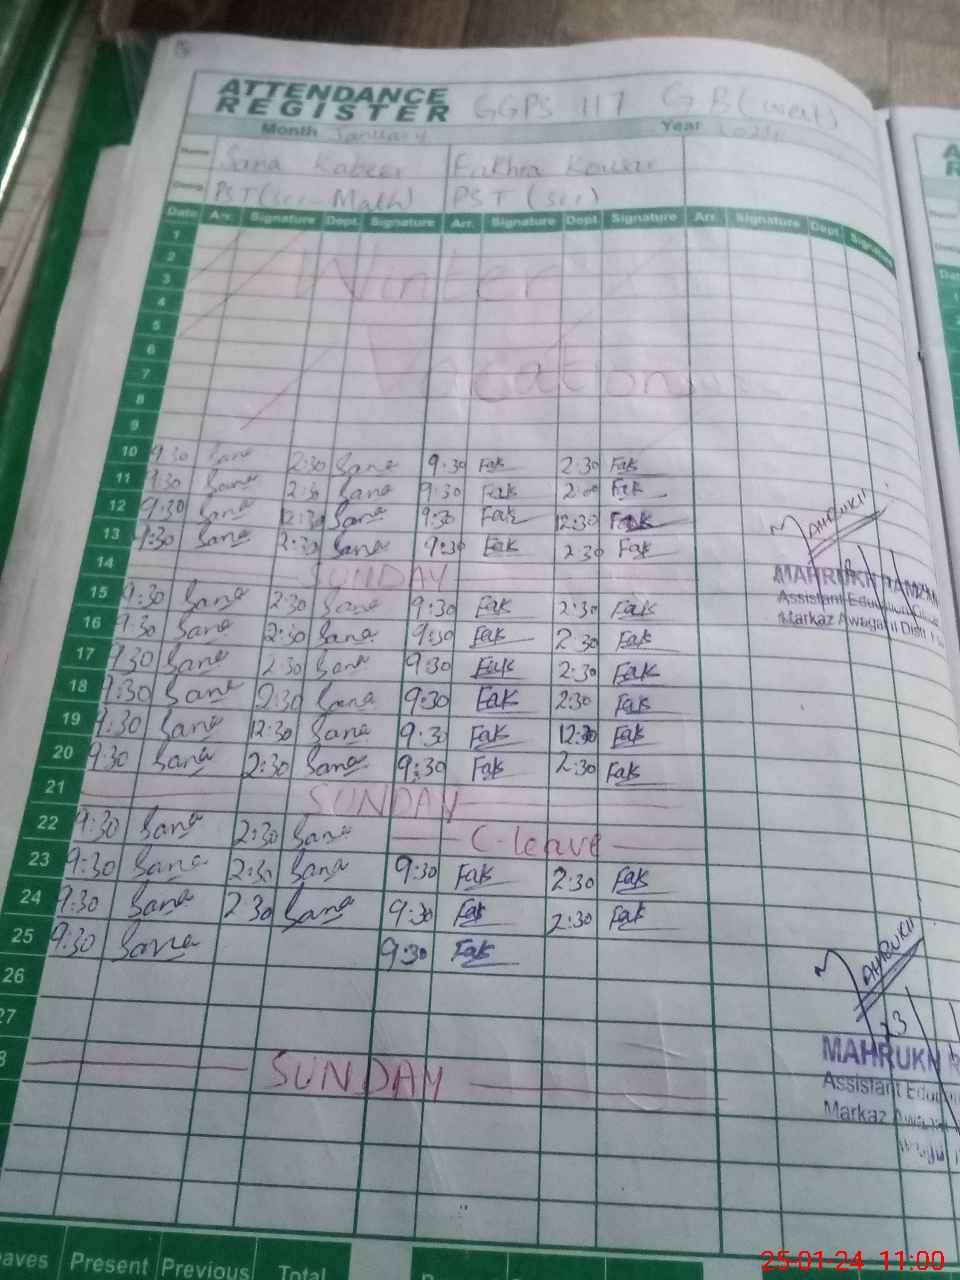 ATTENDANCE
REGISTER GGPS 117 GB (west)
Month January Year 2024
Name Sana Kabeer Fakhra Kowsar
Desig PST (sci-Math) PST (sci)
Date Arr. Signature Dept. Signature Arr. Signature Dept. Signature Arr. Signature Dept. Signature
1
2 Winter
3
4
5
6
7 Vacation
8
9
10 9:30 Sana 2:30 Sana 9:30 Fak 2:30 Fak
11 9:30 Sana 2:30 Sana 9:30 Fak Fak
12 9:30 Sana 12:30 Sana 9:30 Fak 12:30 Fak
13 9:30 Sana 2:30 Sana 9:30 Fak 2:30 Fak
14 SUNDAY
15 9:30 Sana 2:30 Sana 9:30 Fak 2:30 Fak
16 9:30 Sana 2:30 Sana 9:30 Fak 2:30 Fak
17 9:30 Sana 2:30 Sana 9:30 Fak 2:30 Fak
18 9:30 Sana 2:30 Sana 9:30 Fak 2:30 Fak
19 9:30 Sana 12:30 Sana 9:30 Fak 12:30 Fak
20 9:30 Sana 2:30 Sana 9:30 Fak 2:30 Fak
21 SUNDAY
22 9:30 Sana 2:30 Sana C-leave
23 9:30 Sana 2:30 Sana 9:30 Fak 2:30 Fak
24 9:30 Sana 2 30 Sana 9:30 Fak 2:30 Fak
25 9:30 Sana 9:30 Fak
26
27
8 SUNDAY
MAHRUKH
MAHRUKH RAMZAN
Assistant Education
Markaz Awagat II Distt
MAHRUKH
23
MAHRUKH R
Assistant Edu
Markaz
eaves Present Previous Total
25-01-24 11:00